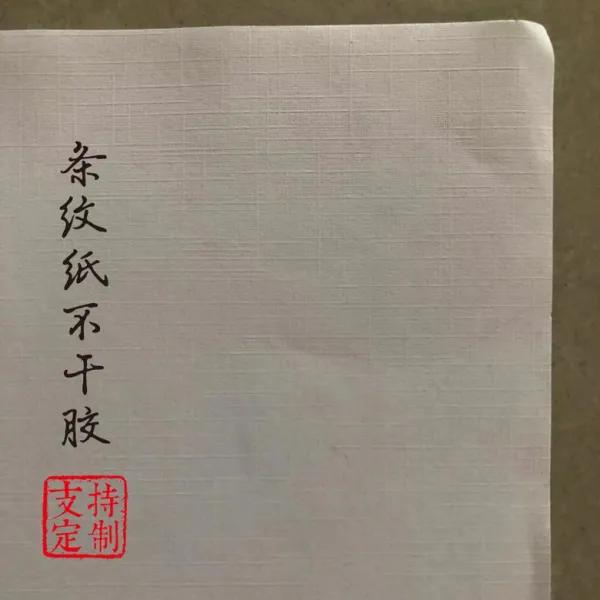 条纹纸不干胶
支持
定制